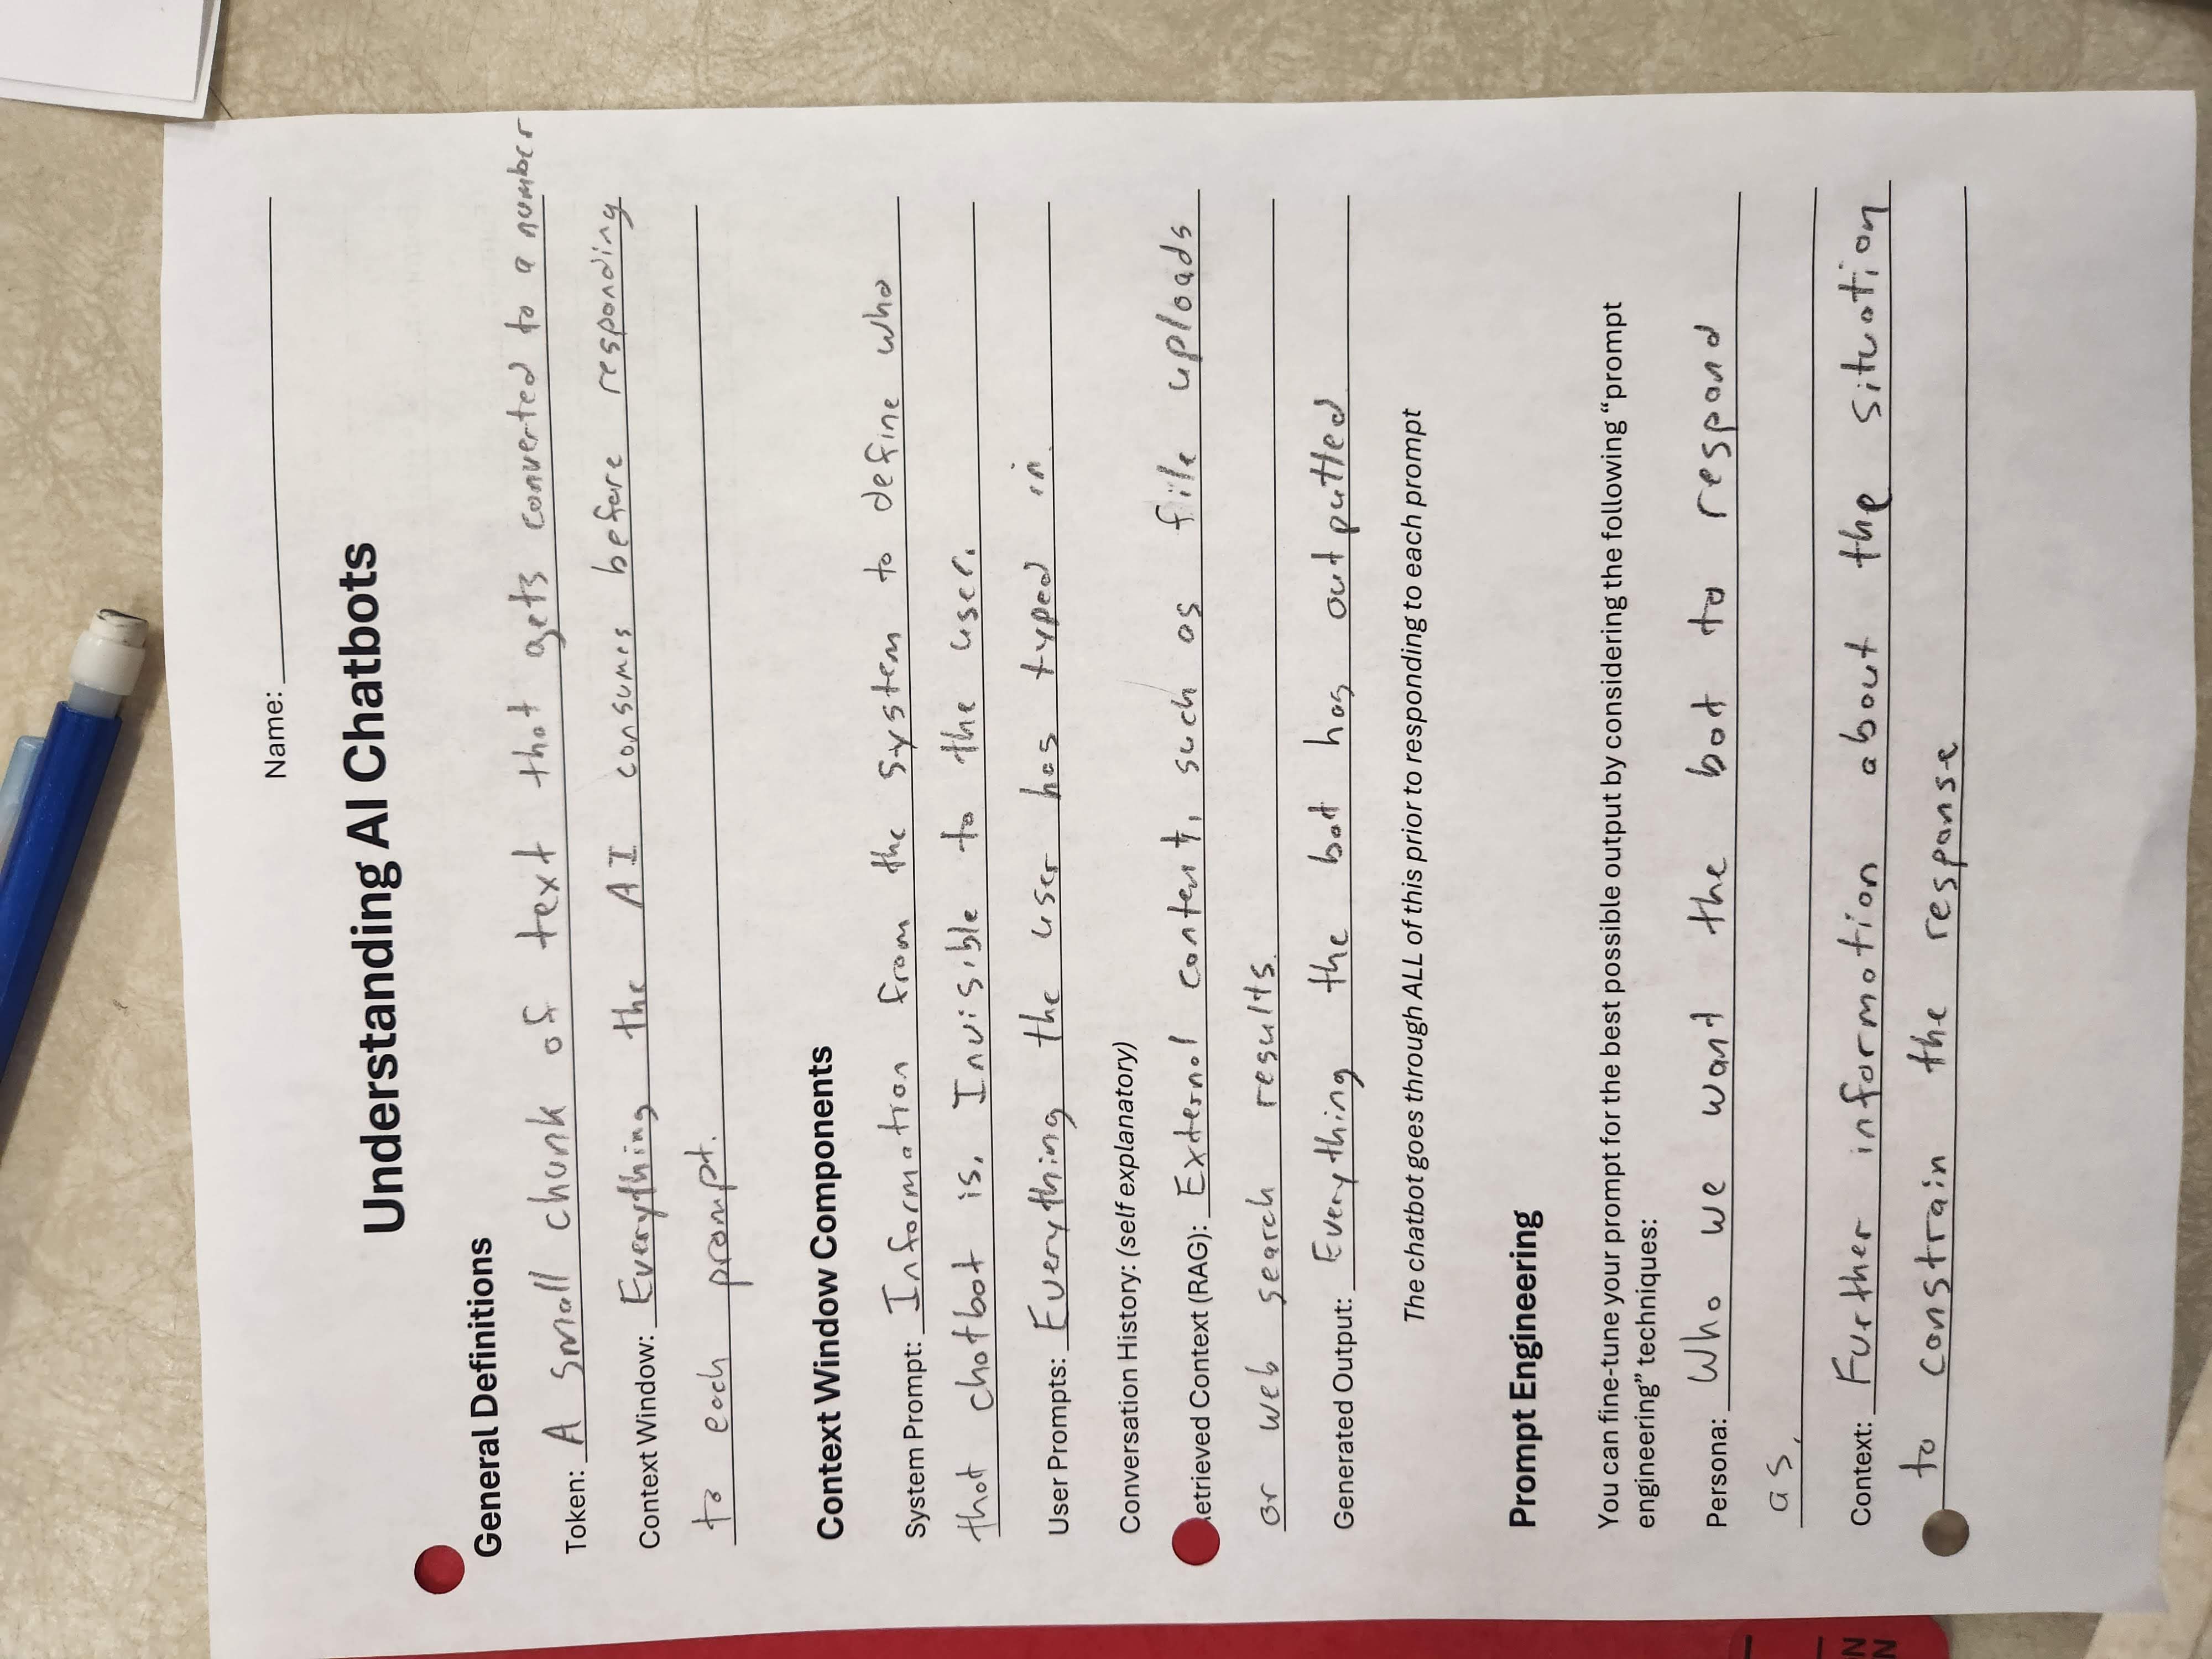 Name:
Understanding AI Chatbots
General Definitions
Token: A small chunk of text that gets converted to a number
Context Window: Everything the AI consumes before responding
to each prompt.
Context Window Components
System Prompt: Information from the system to define who
that chatbot is. Invisible to the user.
User Prompts: Everything the user has typed in.
Conversation History: (self explanatory)
etrieved Context (RAG): External content, such as file uploads
or web search results.
Generated Output: Everything the bot has outputted
The chatbot goes through ALL of this prior to responding to each prompt
Prompt Engineering
You can fine-tune your prompt for the best possible output by considering the following “prompt
engineering” techniques:
Persona: Who we want the bot to respond
as.
Context: Further information about the situation
to constrain the response